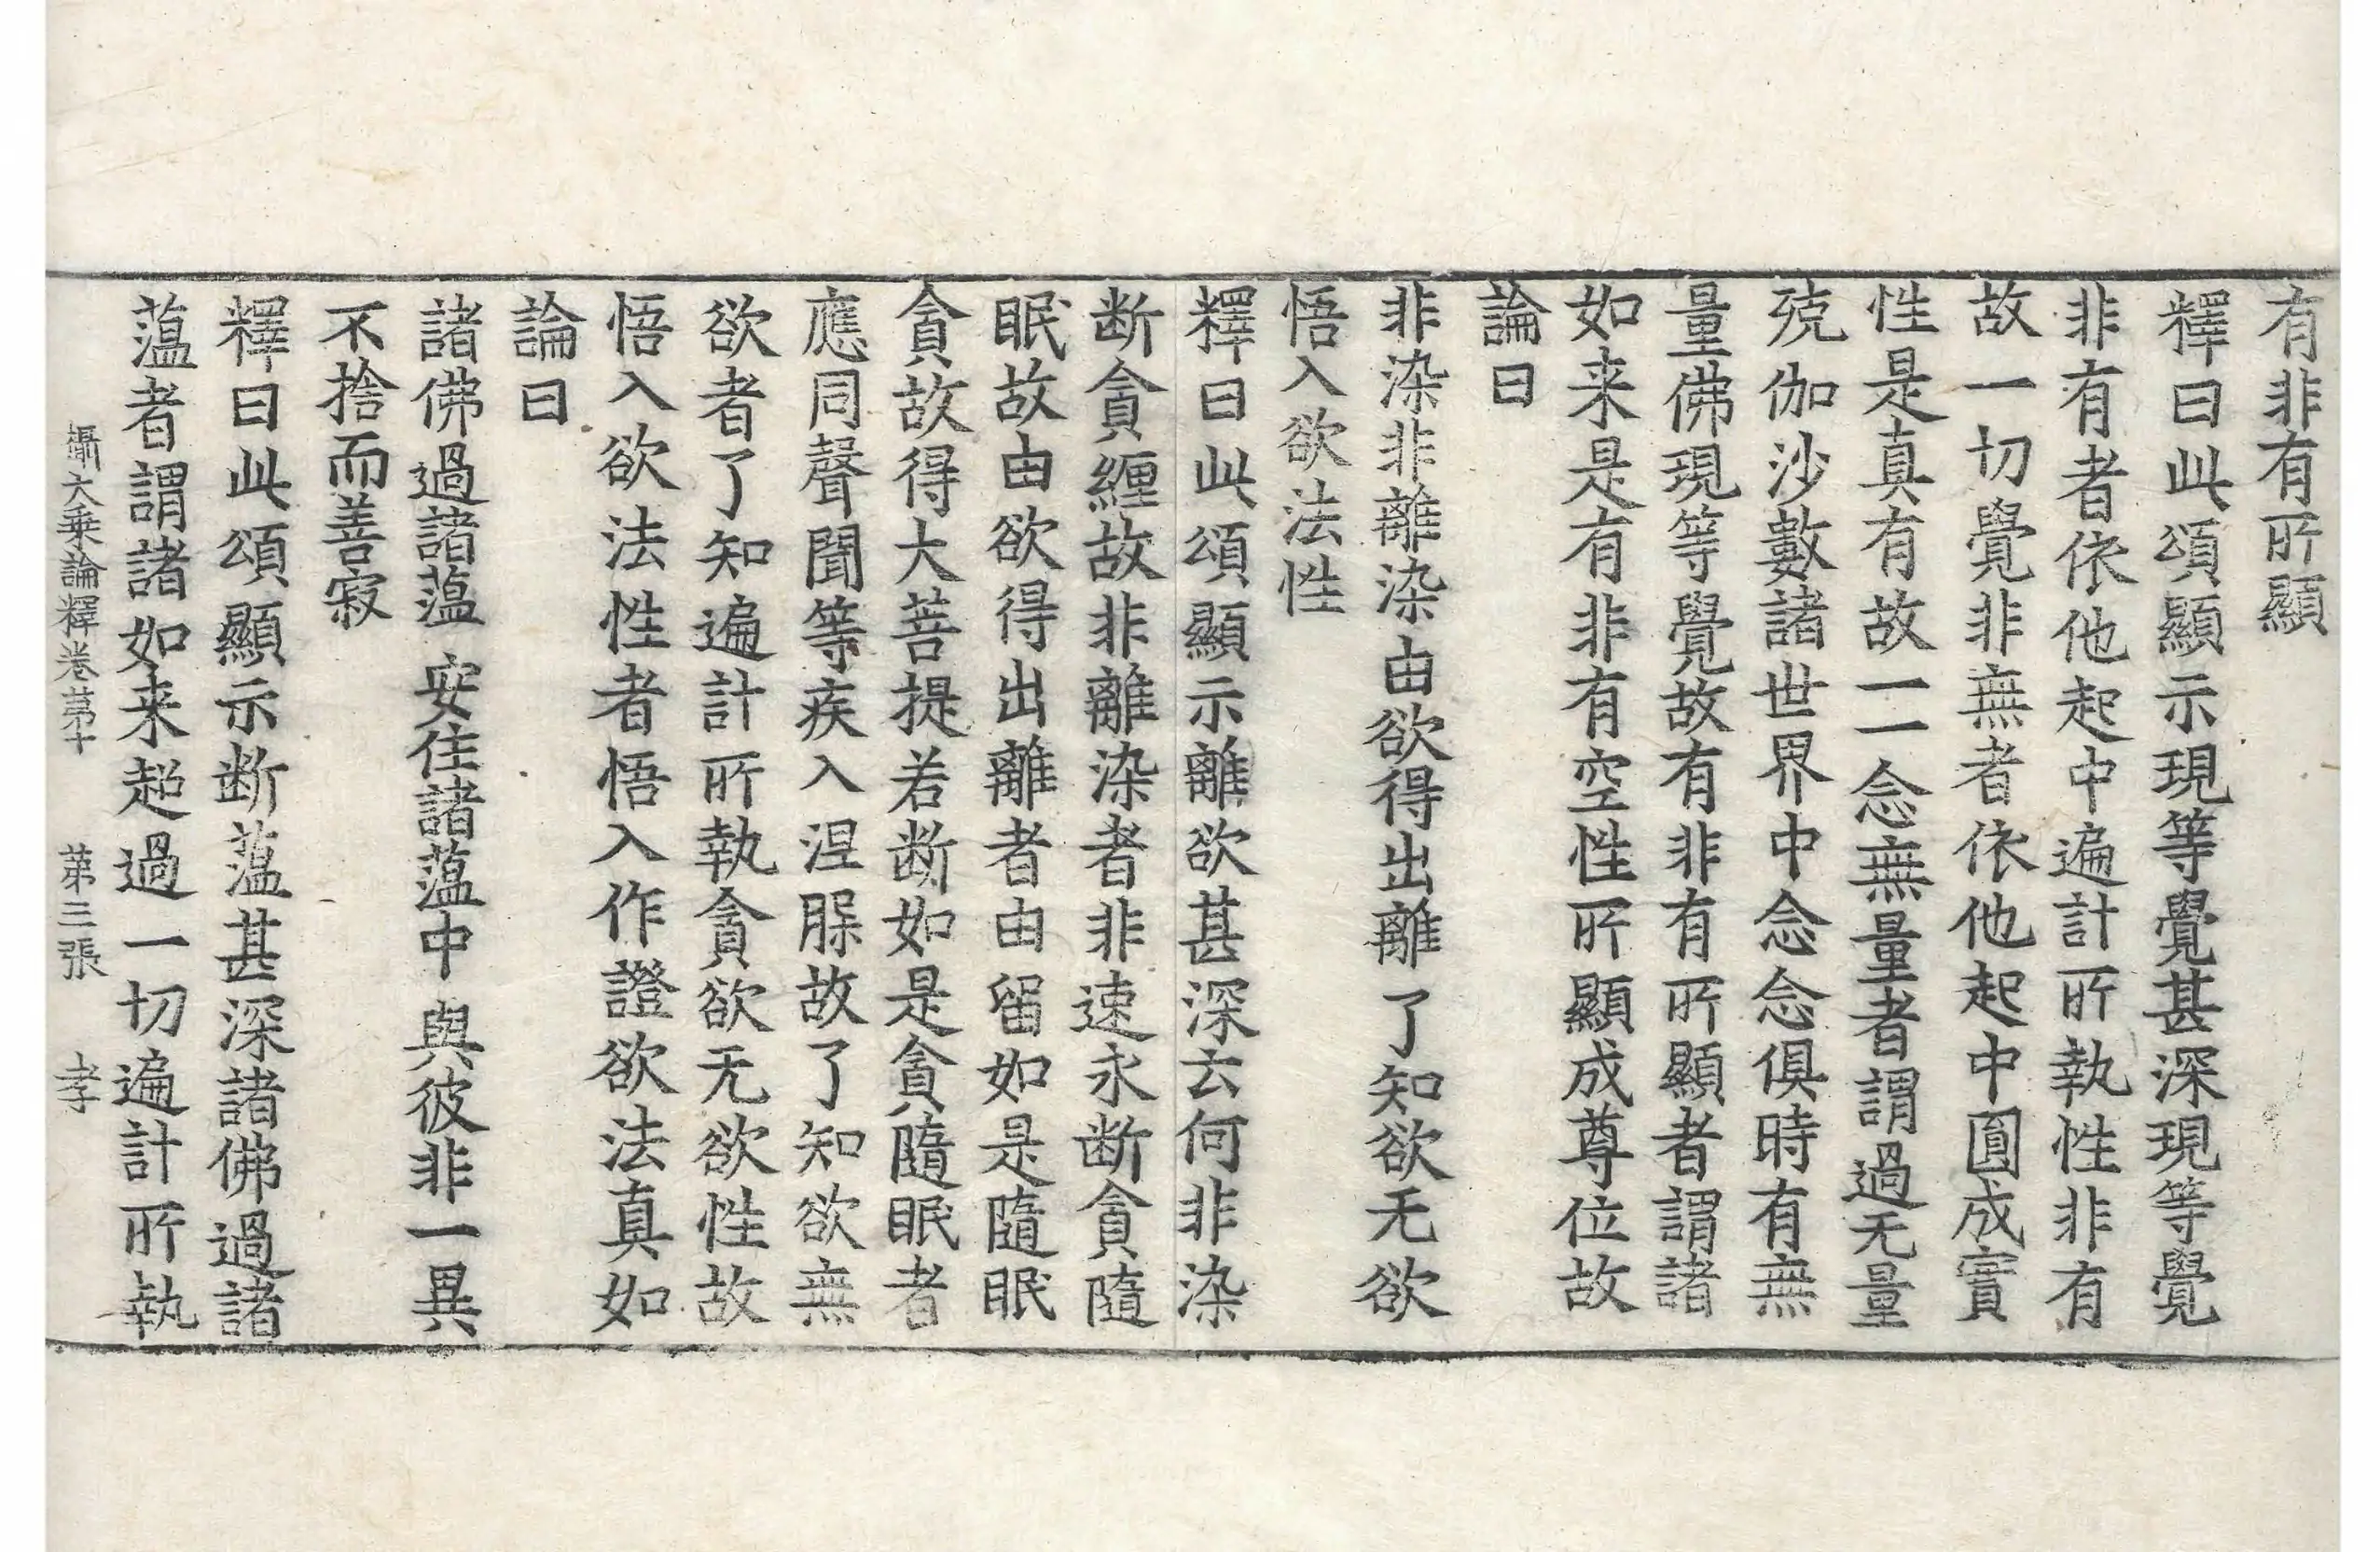 有非有所顯
釋曰此頌顯示現等覺甚深現等覺
非有者依他起中遍計所執性非有
故一切覺非無者依他起中圓成實
性是真有故一一念無量者謂過无量
殑伽沙數諸世界中念念俱時有無
量佛現等覺故有非有所顯者謂諸
如来是有非有空性所顯成尊位故
論曰
非染非離染由欲得出離了知欲无欲
悟入欲法性
釋曰此頌顯示離欲甚深云何非染
断貪纏故非離染者非速永断貪隨
眠故由欲得出離者由留如是隨眠
貪故得大菩提若断如是貪隨眠者
應同聲聞等疾入涅槃故了知欲無
欲者了知遍計所執貪欲无欲性故
悟入欲法性者悟入作證欲法真如
論曰
諸佛過諸蕰 安住諸蕰中 與彼非一異
不捨而善寂
釋曰此頌顯示断蕰甚深諸佛過諸
蕰者謂諸如来超過一切遍計所執
攝大乗論釋卷苐十 苐三張 孝